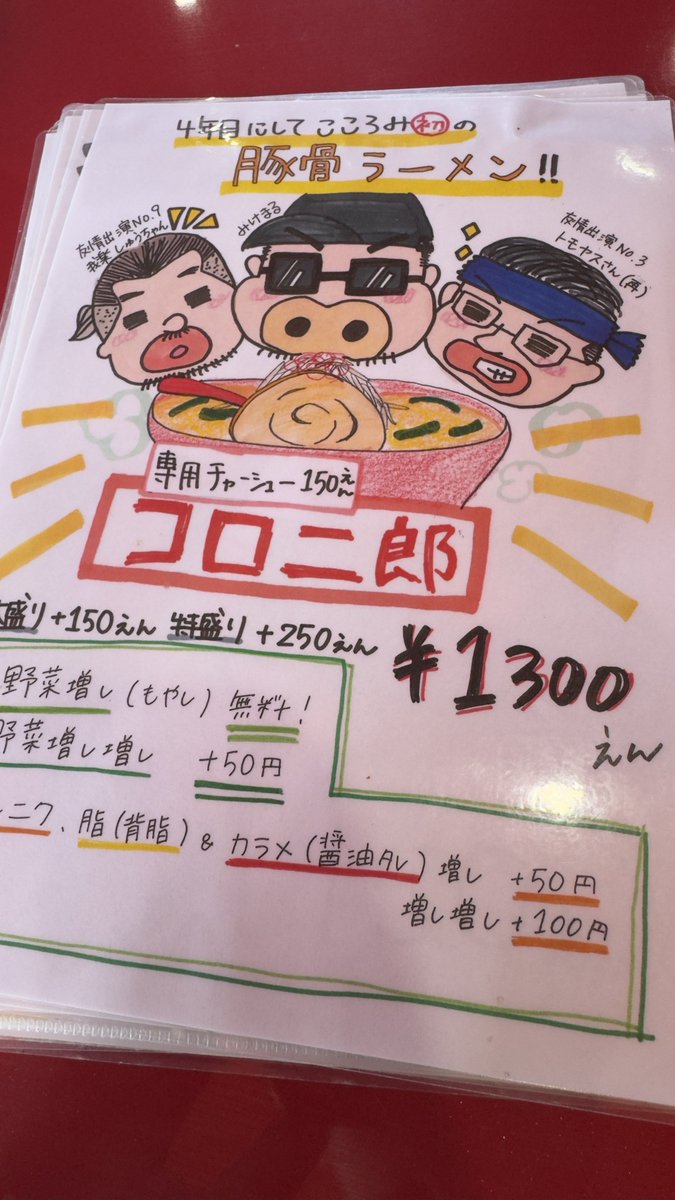 4年目にして こころみ初の
豚骨 ラーメン!!
友情出演No.9
我楽 しゅうちゃん
みけまる
友情出演No.3
トモヤスさん(再)
専用チャーシュー150えん
コロ二郎
盛り+150えん 特盛り+250えん
¥1300
えん
野菜増し(もやし) 無料!
野菜増し増し +50円
ニク、脂(背脂)&カラメ(醤油タレ)増し +50円
増し増し+100円